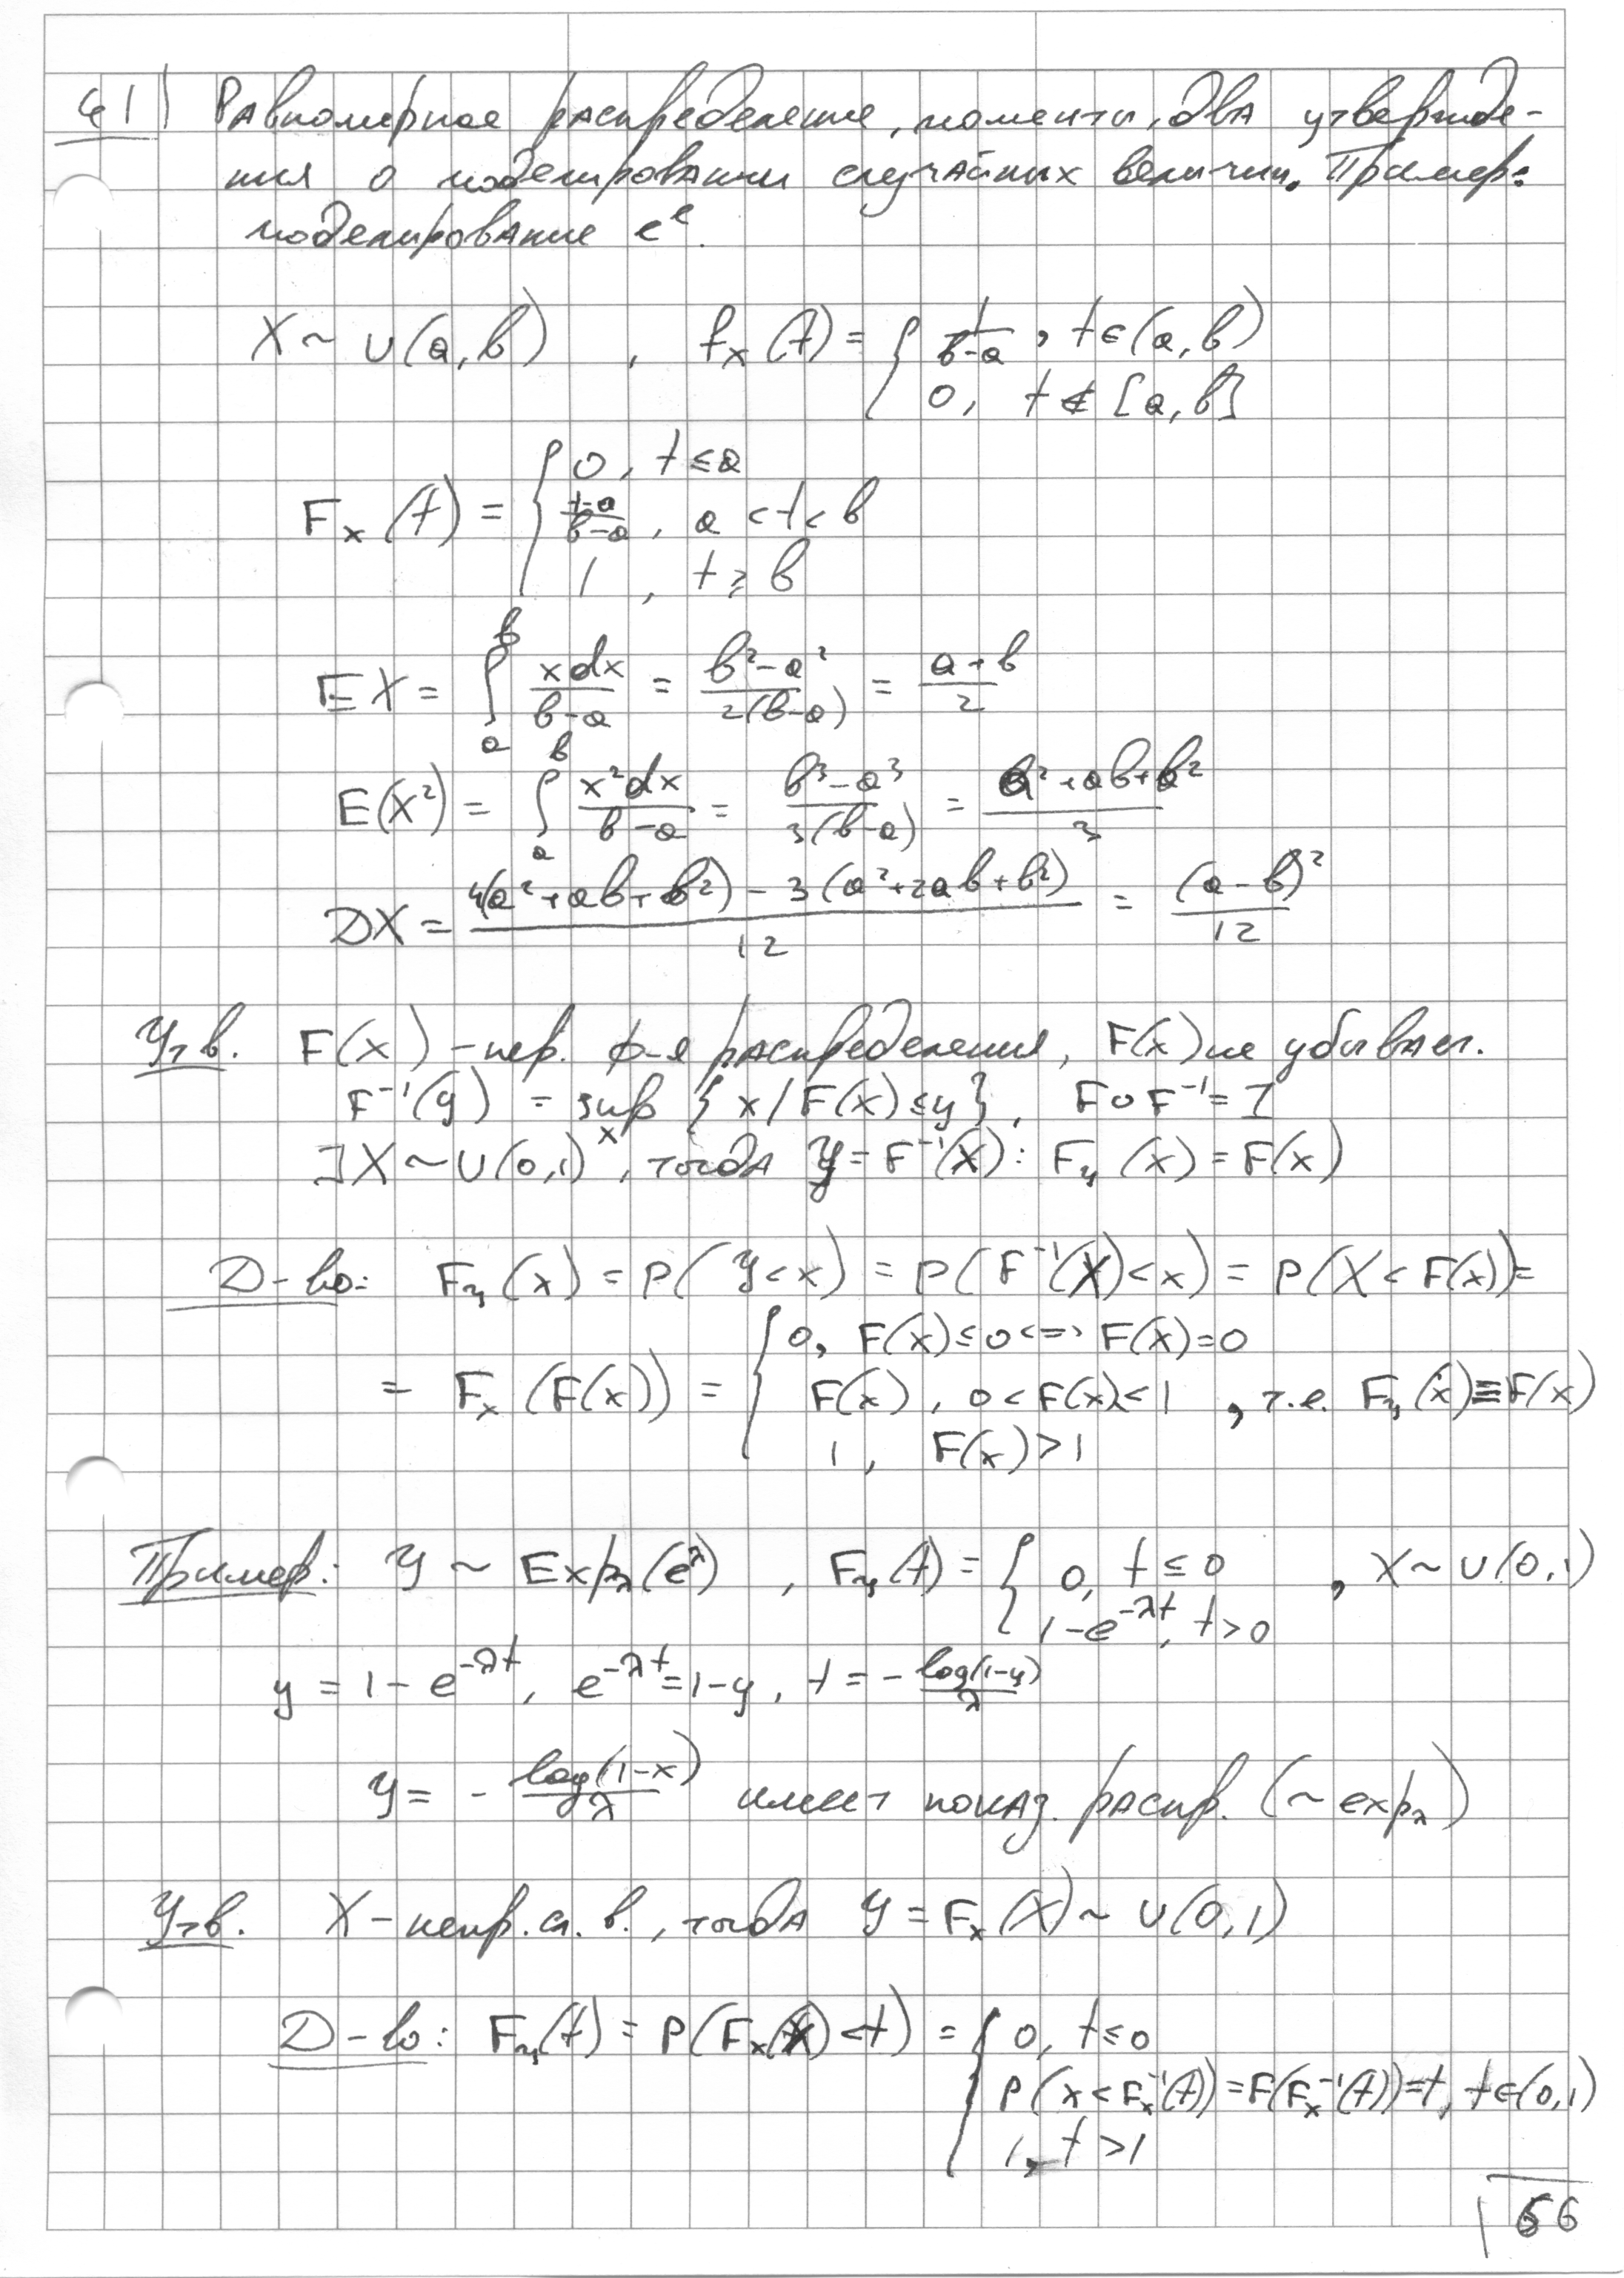 41) Равномерное распределение, моменты, два утвержде-
ния о моделировании случайных величин. Пример:
моделирование e^λ.
X ~ U(a, b) , f_X(t) = { 1/(b-a), t ∈ (a, b)
0, t ∉ [a, b]
F_X(t) = { 0, t ≤ a
(t-a)/(b-a), a < t < b
1, t ≥ b
EX = ∫_a^b xdx/(b-a) = (b²-a²)/(2(b-a)) = (a+b)/2
E(X²) = ∫_a^b x²dx/(b-a) = (b³-a³)/(3(b-a)) = (a²+ab+b²)/3
DX = (4(a²+ab+b²) - 3(a²+2ab+b²))/12 = (a-b)²/12
Утв. F(x) - непр. ф-я распределения, F(x) не убывает.
F⁻¹(y) = sup_x {x / F(x) ≤ y}, F∘F⁻¹ = I
∃ X ~ U(0,1), тогда Y = F⁻¹(X): F_Y(x) = F(x)
Д-во: F_Y(x) = P(Y < x) = P(F⁻¹(X) < x) = P(X < F(x)) =
= F_X(F(x)) = { 0, F(x) ≤ 0 <=> F(x) = 0
F(x), 0 < F(x) < 1 , т.е. F_Y(x) ≡ F(x)
1, F(x) > 1
Пример: Y ~ Exp_λ(e^λ) , F_Y(t) = { 0, t ≤ 0 , X ~ U(0,1)
1-e^{-λt}, t > 0
y = 1 - e^{-λt}, e^{-λt} = 1-y, t = - log(1-y)/λ
Y = - log(1-x)/λ имеет показ. распр. (~ exp_λ)
Утв. X - непр. сл. в., тогда Y = F_X(X) ~ U(0,1)
Д-во: F_Y(t) = P(F_X(X) < t) = { 0, t ≤ 0
P(X < F_X⁻¹(t)) = F(F_X⁻¹(t)) = t, t ∈ (0,1)
1, t > 1
66